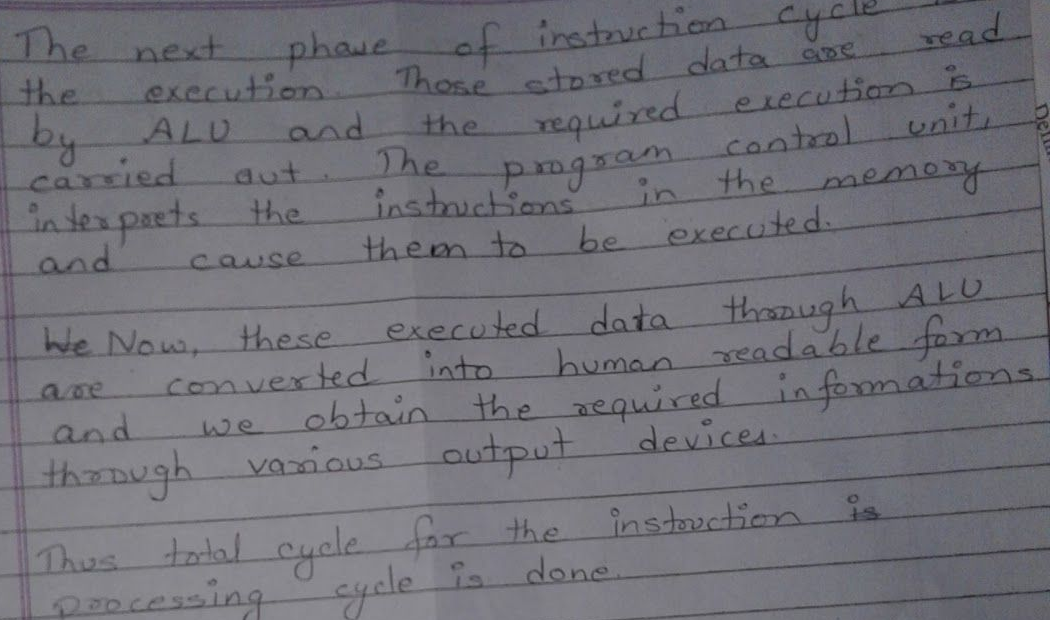 The next phase of instruction cycle
the execution. Those stored data are read
by ALU and the required execution is
carried out. The program control unit,
interprets the instructions in the memory
and cause them to be executed.
We Now, these executed data through ALU
are converted into human readable form
and we obtain the required informations
through various output devices.
Thus total cycle for the instruction is
processing cycle is done.